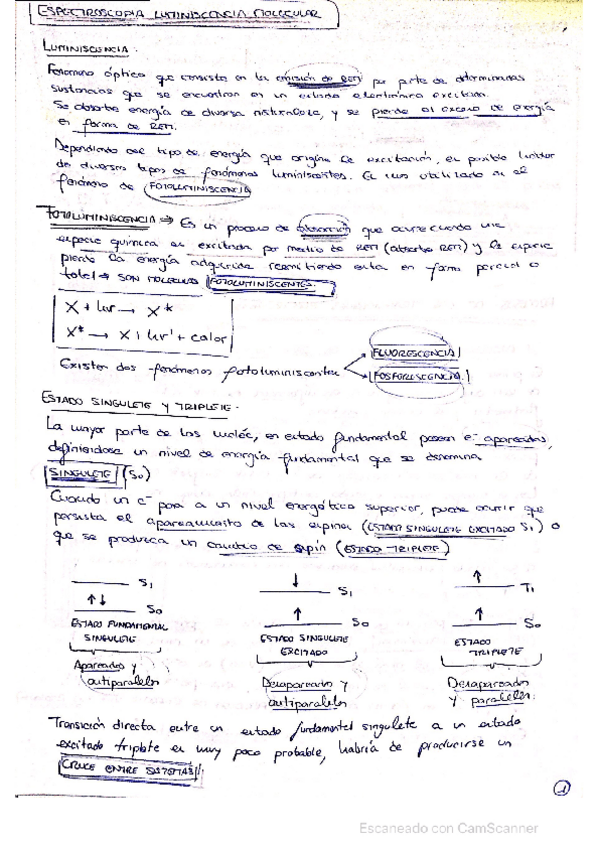 ESPECTROSCOPIA LUMINISCENCIA MOLECULAR
LUMINISCENCIA:
Fenómeno óptico que consiste en la emisión de REM por parte de determinadas
sustancias que se encuentran en un estado electrónico excitado.
Se absorbe energía de diversa naturaleza, y se pierde el exceso de energía
en forma de REM.
Dependiendo del tipo de energía que origina la excitación, es posible hablar
de diversos tipos de fenómenos luminiscentes. El más utilizado es el
fenómeno de FOTOLUMINISCENCIA
FOTOLUMINISCENCIA ⇒ Es un proceso de que ocurre cuando una
especie química es excitada por medio de REM (absorbe REM) y la especie
pierde la energía adquirida reemitiendo esta en forma parcial o
total → SON MOLECULAS FOTOLUMINISCENTES.
X + hν → X*
X* → X + hν' + calor
Existen dos fenómenos fotoluminiscentes
FLUORESCENCIA
FOSFORESCENCIA
ESTADO SINGULETE Y TRIPLETE.
La mayor parte de las moléc, en estado fundamental poseen e⁻ apareados,
definiéndose un nivel de energía fundamental que se denomina
SINGULETE (S₀)
Cuando un e⁻ pasa a un nivel energético superior, puede ocurrir que
persista el apareamiento de los espines (ESTADO SINGULETE EXCITADO S₁) o
que se produzca un cambio de espín (ESTADO TRIPLETE)
S₁ ↓ S₁ ↑ T₁
↑↓ S₀ ↑ S₀ ↑ S₀
ESTADO FUNDAMENTAL SINGULETE
ESTADO SINGULETE EXCITADO
ESTADO TRIPLETE
Apareados y antiparalelos
Desapareados y antiparalelos
Desapareados y paralelos.
Transición directa entre un estado fundamental singulete a un estado
excitado triplete es muy poco probable, habría de producirse un
CRUCE ENTRE SISTEMAS
1
Escaneado con CamScanner